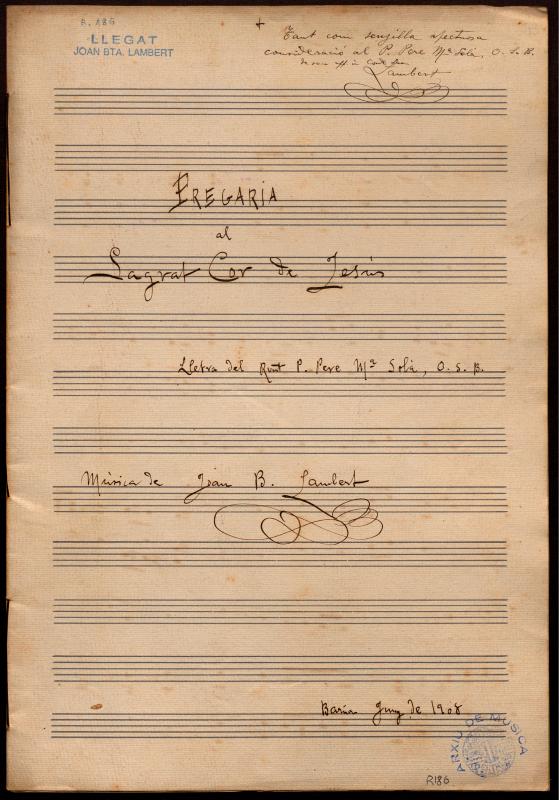 R. 186
LLEGAT
JOAN BTA. LAMBERT
Tant com sensilla afectuosa
consideració al P. Pere Mª Solà, O. S. B.
Lambert
PREGARIA
al
Sagrat Cor de Jesús
Lletra del Runt P. Pere Mª Solà, O. S. B.
Música de Joan B. Lambert
Barna Juny de 1908
ARXIU DE MUSICA
R186